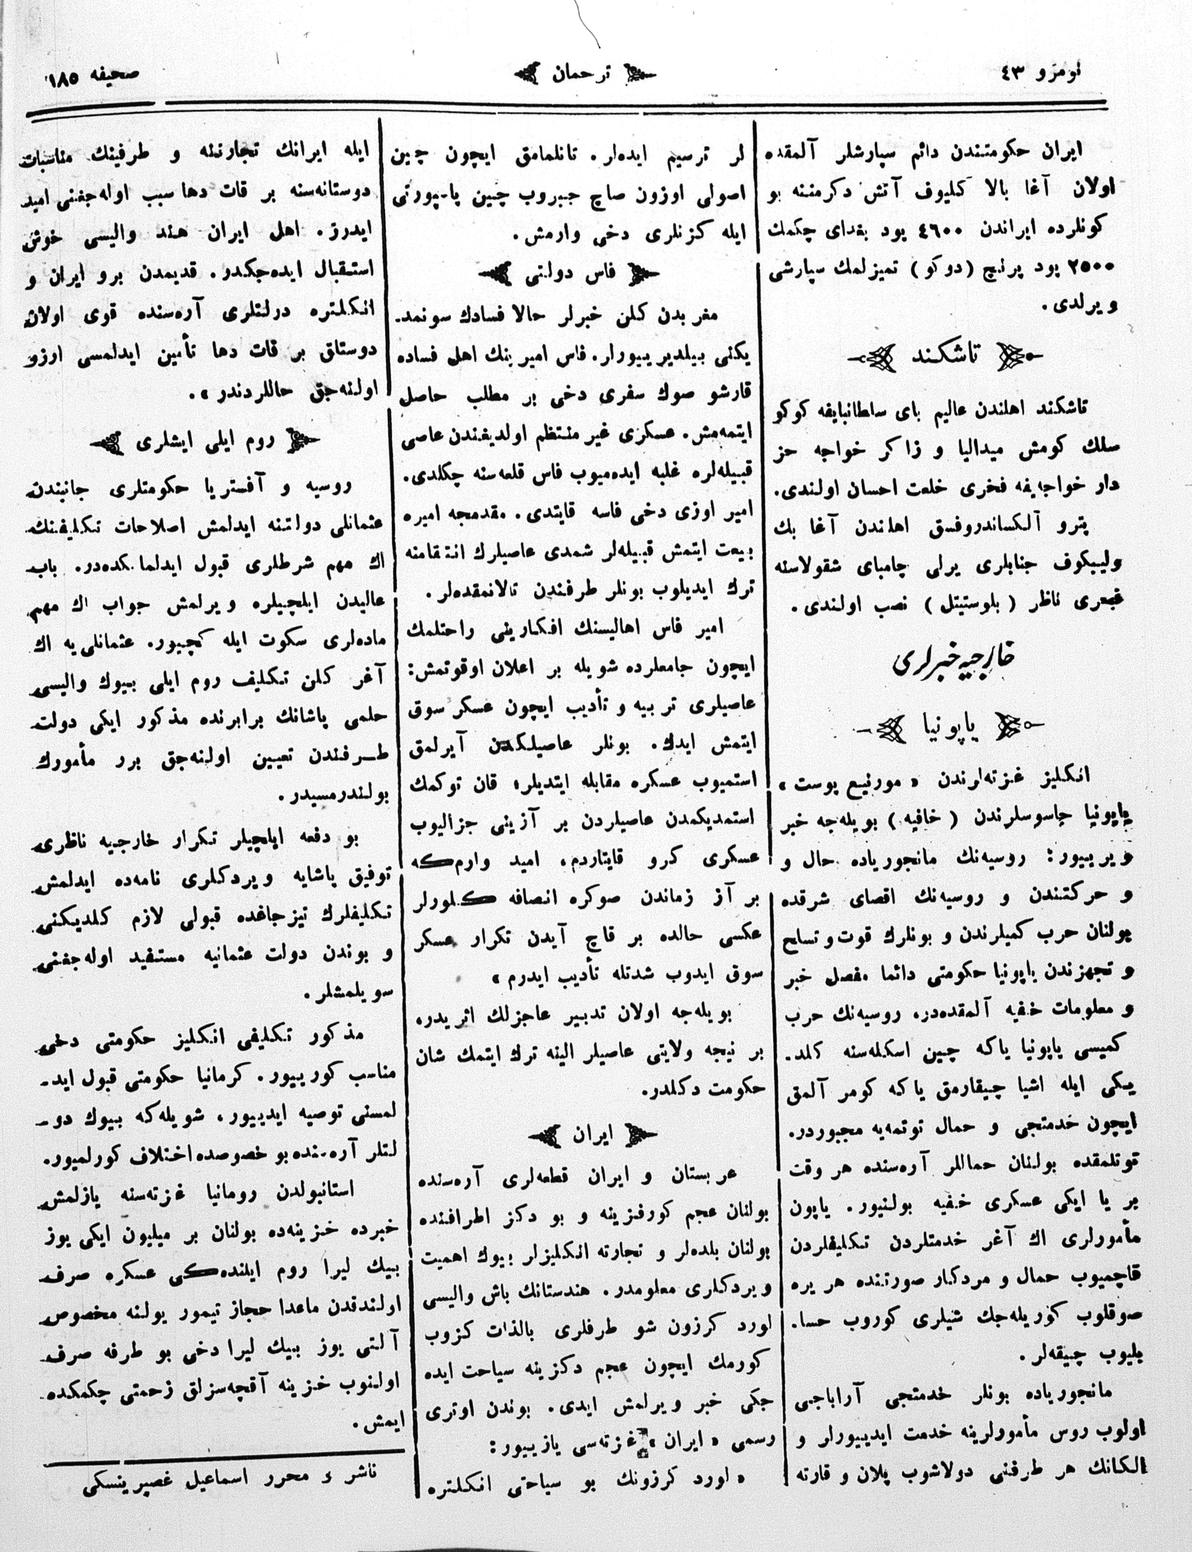 نومرو ٤٣
ترجمان
صحیفه ١٨٥
ایران حکومتندن دائم سپارشلر آلمقده
اولان آغا بالا کلیوف آتش دکرمننه بو
کونلرده ایراندن ٤٦٠٠ پود بغدای چکمك
٢٥٠٠ پود پرنچ (دوکو) تمیزلمك سپارشی
ویرلدی.
تاشکند
تاشکند اهلندن عالیم بای ساطانبایفه کوکو
سلك کومش میدالیا و زاکر خواجه خز
دار خواجه‌یفه فخری خلعت احسان اولندی.
پترو آلکساندروفسق اهلندن آغا بك
ولیبکوف جنابلری یرلی چامبای شقولاسنه
فخری ناظر (بلوستیتل) نصب اولندی.
خارجیه خبرلری
یاپونیا
انکلیز غزته‌لرندن «مورنیع پوست»
یاپونیا چاسوسلرندن (خافیه) بویله‌جه خبر
ویرییور: روسیه‌نك مانجوریاده حال و
و حرکتندن و روسیه‌نك اقصای شرقده
بولنان حرب کمیلرندن و بونلرك قوت و تسلح
و تجهزندن یاپونیا حکومتی دائما مفصل خبر
و معلومات خفیه آلمقده‌در. روسیه‌نك حرب
کمیسی یاپونیا یاکه چین اسکله‌سنه کلد.
یکی ایله اشیا چیقارمق یاکه کومر آلمق
ایچون خدمتجی و حمال توتمه‌یه مجبوردر.
توتلمقده بولنان حماللر آره‌سنده هر وقت
بر یا ایکی عسکری خفیه بولنیور. یاپون
مأمورلری اك آغر خدمتلردن تکلیفلردن
قاچمیوب حمال و مردکار صورتنده هر یره
صوقلوب کوریله‌جك شیلری کوروب حسا.
بلیوب چیقه‌لر.
مانجوریاده بونلر خدمتجی آراباجی
اولوب روس مأمورلرینه خدمت ایدییورلر و
الکانك هر طرفنی دولاشوب پلان و قارته
لر ترسیم ایده‌لر. تانلمامق ایچون چین
اصولی اوزون صاچ جیروب چین پاسپورتی
ایله کزنلری دخی وارمش.
فاس دولتی
مغربدن کلن خبرلر حالا فسادك سونمد.
یکنی بیلدیرییورلر. فاس امیرینك اهل فساده
قارشو صوك سفری دخی بر مطلب حاصل
ایتمه‌مش. عسکری غیر منتظم اولدیغندن عاصی
قبیله‌لره غلبه ایده‌میوب فاس قلعه‌سنه چکلدی.
امیر اوزی دخی فاسه قایتدی. مقدمجه امیره
بیعت ایتمش قبیله‌لر شمدی عاصیلرك انتقامنه
ترك ایدیلوب بونلر طرفندن تالانمقده‌لر.
امیر فاس اهالیسنك افکارینی راحتلمك
ایچون جامعلرده شویله بر اعلان اوقوتمش:
عاصیلری تربیه و تأدیب ایچون عسکر سوق
ایتمش ایدك. بونلر عاصیلکدن آیرلمق
استمیوب عسکره مقابله ایتدیلر؛ قان توکمك
استمدیکمدن عاصیلردن بر آزینی جزالیوب
عسکری کرو قایتاردم، امید وارم‌که
بر آز زماندن صوکره انصافه کلورلر
عکسی حالده بر قاچ آیدن تکرار عسکر
سوق ایدوب شدتله تأدیب ایدرم»
بویله‌جه اولان تدبیر عاجزلك اثریدر.
بر نیجه ولایتی عاصیلر الینه ترك ایتمك شان
حکومت دکلدر.
ایران
عربستان و ایران قطعه‌لری آره‌سنده
بولنان عجم کورفزینه و بو دکز اطرافنده
بولنان بلده‌لر و تجارته انکلیزلر بیوك اهمیت
ویردکلری معلومدر. هندستانك باش والیسی
لورد کرزون شو طرفلری بالذات کزوب
کورمك ایچون عجم دکزینه سیاحت ایده
جکی خبر ویرلمش ایدی. بوندن اوتری
رسمی «ایران» غزته‌سی یازییور:
«لورد کرزونك بو سیاحتی انکلتره
ایله ایرانك تجارتنه و طرفینك مناسبات
دوستانه‌سنه بر قات دها سبب اوله‌جغنی امید
ایدرز. اهل ایران هند والیسی خوش
استقبال ایده‌جکدر. قدیمدن برو ایران و
انکلتره دولتلری آره‌سنده قوی اولان
دوستلق بر قات دها تأمین ایدلمسی ارزو
اولنه‌جق حاللردندر».
روم ایلی ایشلری
روسیه و آفستریا حکومتلری جانبندن
عثمانلی دولتنه ایدلمش اصلاحات تکلیفنك
اك مهم شرطلری قبول ایدلمامکده‌در. باب
عالیدن ایلچیلره ویرلمش جواب اك مهم
ماده‌لری سکوت ایله کچیور. عثمانلی‌یه اك
آغر کلن تکلیف روم ایلی بیوك والیسی
حلمی پاشانك برابرنده مذکور ایکی دولت
طرفندن تعیین اولنه‌جق برر مأمورك
بولندرمسیدر.
بو دفعه ایلچیلر تکرار خارجیه ناظری
توفیق پاشایه ویردکلری نامه‌ده ایدلمش
تکلیفلرك تیزجاغده قبولی لازم کلدیکنی
و بوندن دولت عثمانیه مستفید اوله‌جغنی
سویلمشلر.
مذکور تکلیفی انکلیز حکومتی دخی
مناسب کورییور. کرمانیا حکومتی قبول اید-
لمسنی توصیه ایدییور. شویله‌که بیوك دو-
لتلر آره‌سنده بو خصوصده اختلاف کورلمیور.
استانبولدن رومانیا غزته‌سنه یازلمش
خبرده خزینه‌ده بولنان بر میلیون ایکی یوز
بیك لیرا روم ایلنده‌کی عسکره صرف
اولندقدن ماعدا حجاز تیمور یولنه مخصوص
آلتی یوز بیك لیرا دخی بو طرفه صرف
اولنوب خزینه آقچه‌سزلق زحمتی چکمکده
ایمش.
ناشر و محرر اسماعیل غصپرینسکی